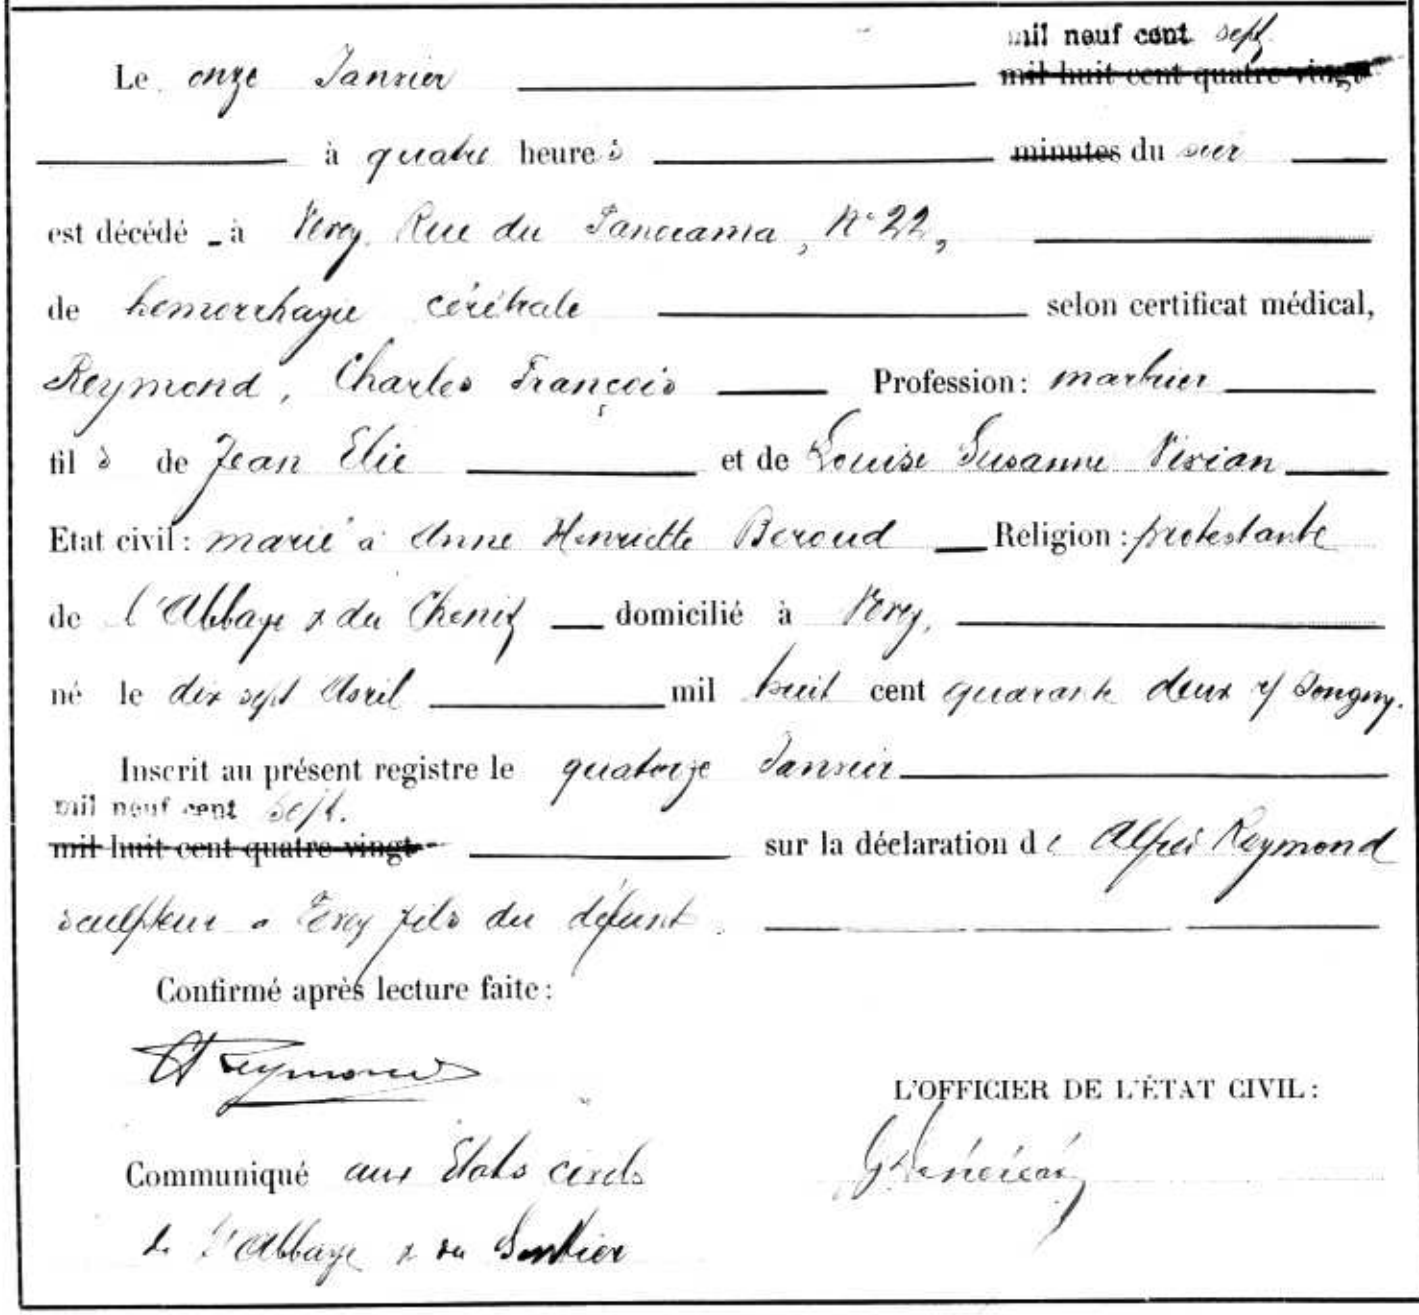 mil neuf cent sept
Le onze Janvier mil huit cent quatre-vingt
à quatre heures minutes du soir
est décédé - à Vevey, Rue du Panorama, N° 22,
de hemorrhagie cérébrale selon certificat médical,
Reymond, Charles François Profession: marbrier
fils de Jean Elie et de Louise Susanne Vivian
Etat civil: marié à Anne Henriette Beroud Religion: protestante
de l'Abbaye & du Chenit domicilié à Vevey,
né le dix sept Avril mil huit cent quarante deux
Inscrit au présent registre le quatorze Janvier
mil neuf cent sept.
mil huit cent quatre-vingt sur la déclaration de Alfred Reymond
sculpteur à Vevey fils du défunt.
Confirmé après lecture faite:
A Reymond
L'OFFICIER DE L'ÉTAT CIVIL:
Communiqué aux Etats civils
de l'Abbaye & du Sentier